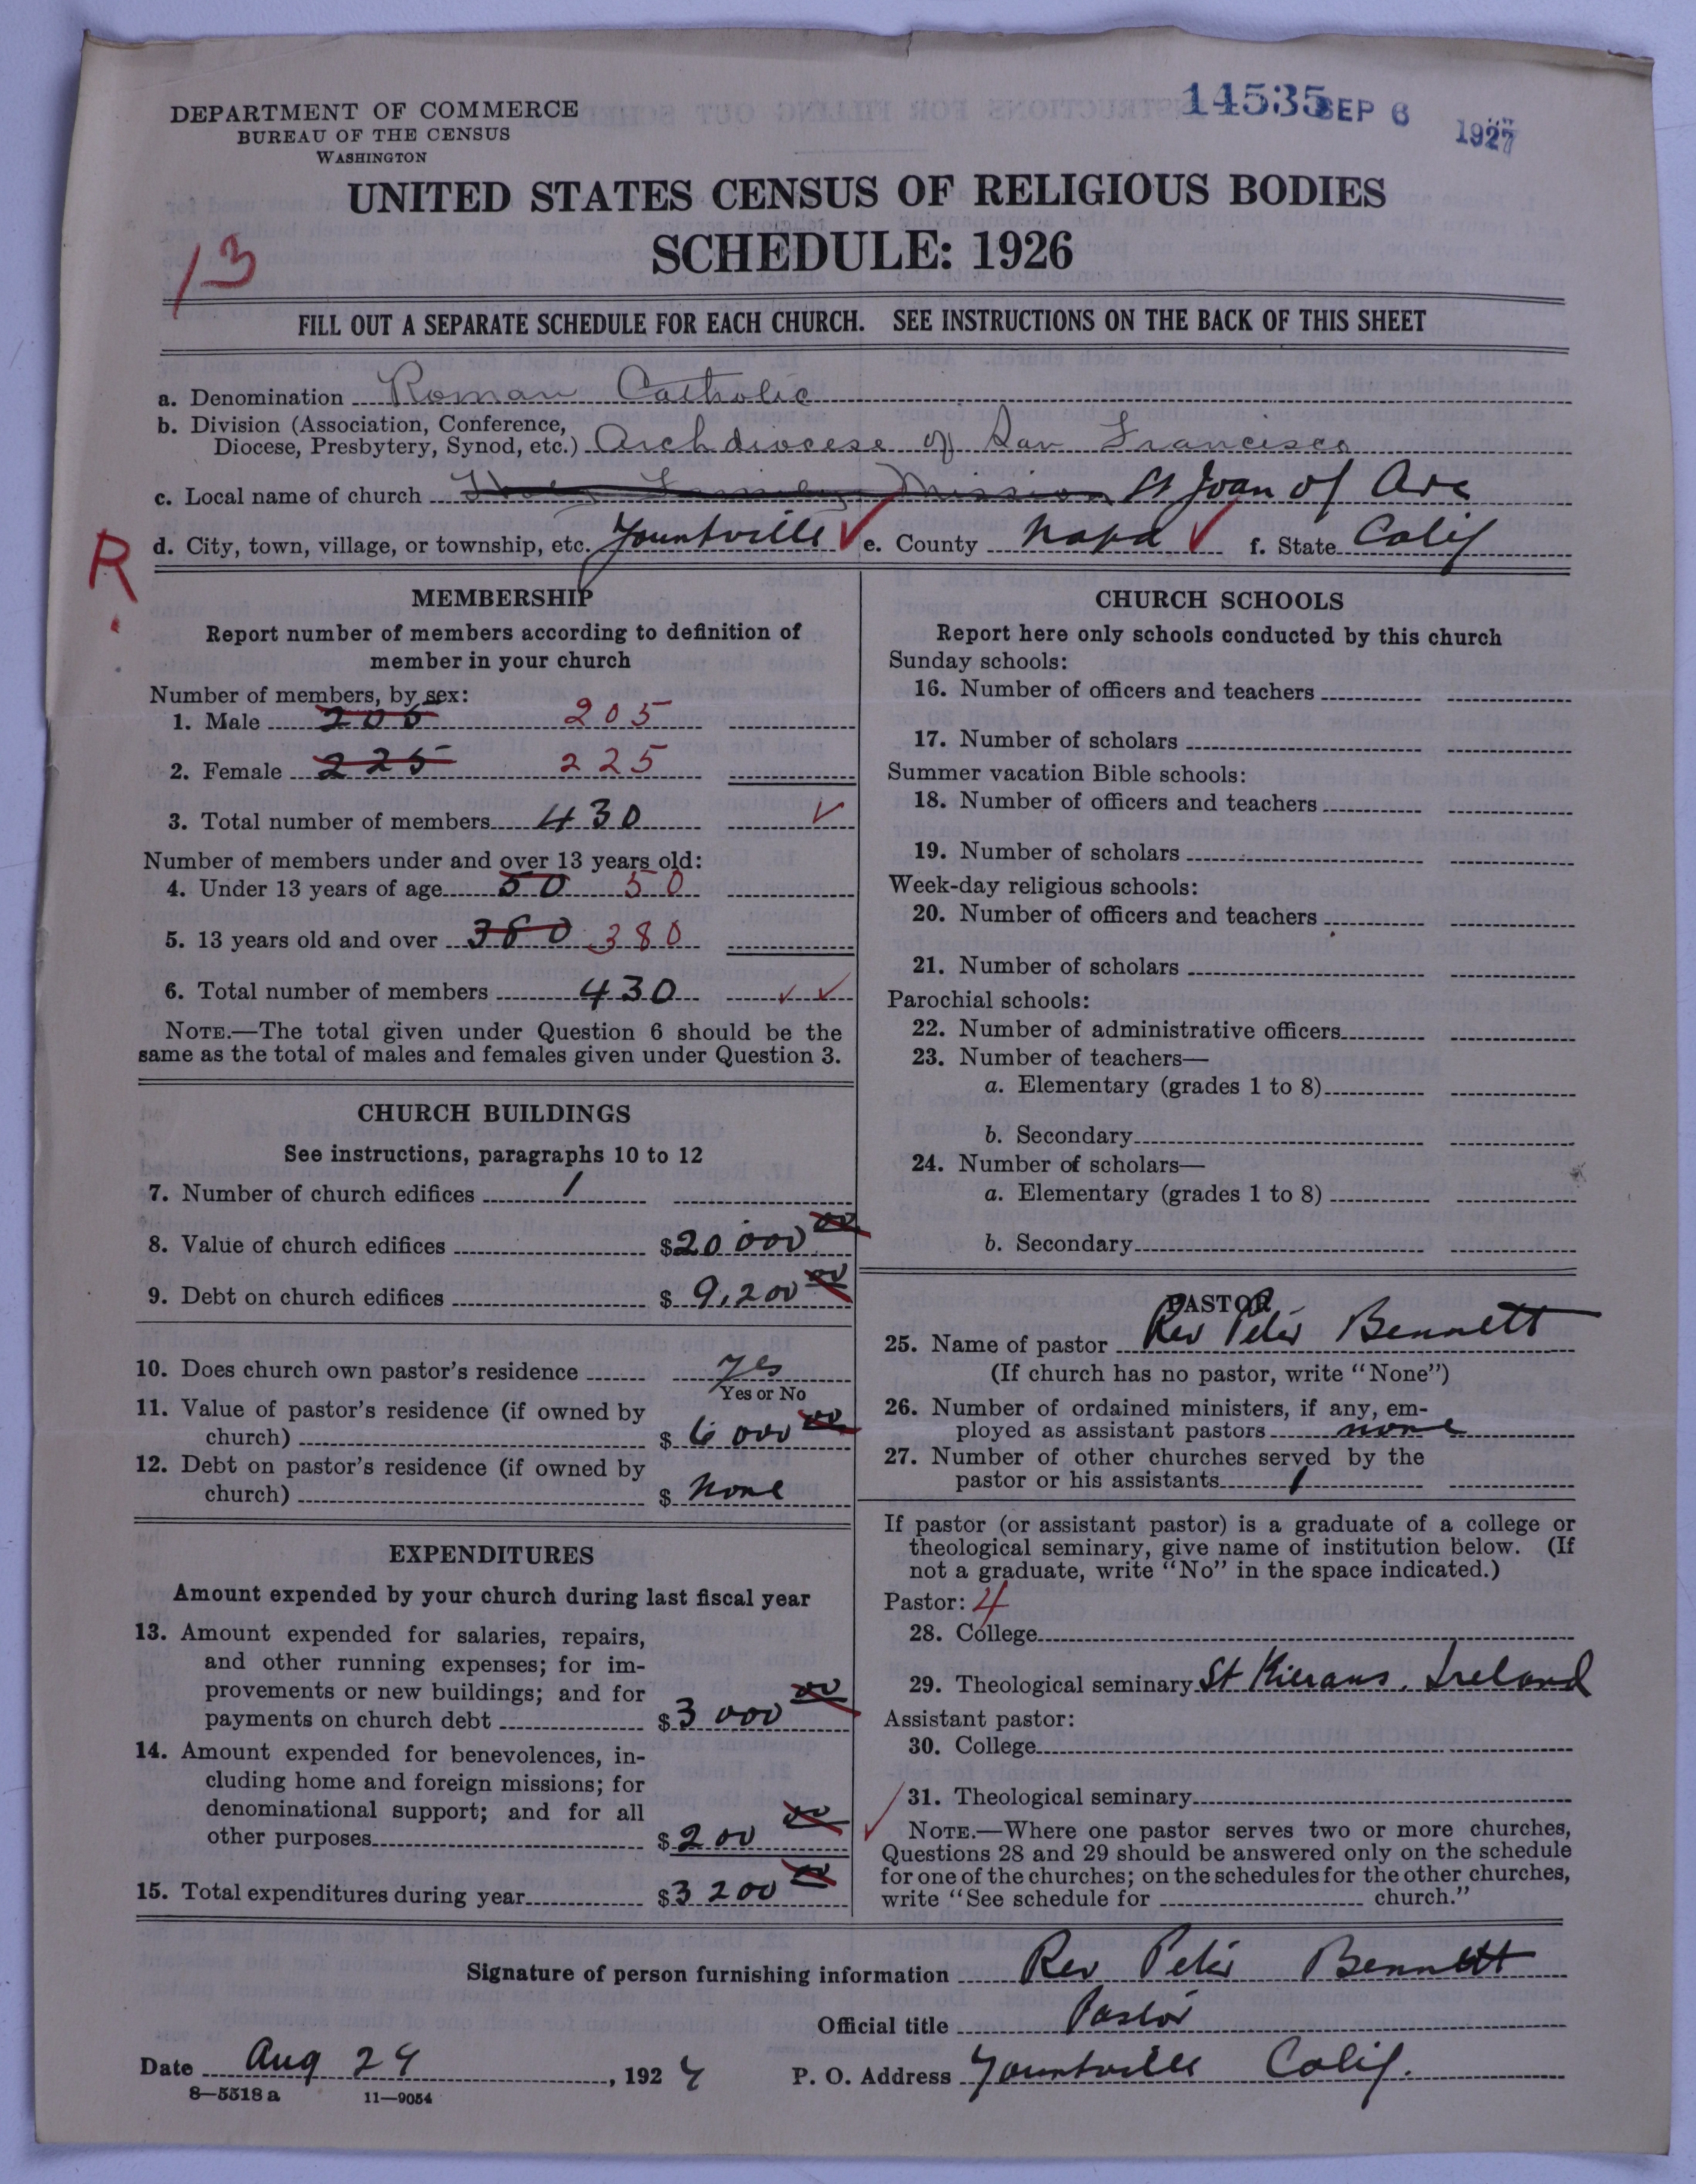 14535 SEP 6 1927
DEPARTMENT OF COMMERCE
BUREAU OF THE CENSUS
WASHINGTON
UNITED STATES CENSUS OF RELIGIOUS BODIES
SCHEDULE: 1926
13
FILL OUT A SEPARATE SCHEDULE FOR EACH CHURCH. SEE INSTRUCTIONS ON THE BACK OF THIS SHEET
a. Denomination Roman Catholic
b. Division (Association, Conference,
Diocese, Presbytery, Synod, etc.) Archdiocese of San Francisco
c. Local name of church Holy Family Mission St Joan of Arc
R
d. City, town, village, or township, etc. Yountville e. County Napa f. State Calif
MEMBERSHIP
Report number of members according to definition of
member in your church
Number of members, by sex:
1. Male 205 205
2. Female 225 225
3. Total number of members 430
Number of members under and over 13 years old:
4. Under 13 years of age 50 50
5. 13 years old and over 380 380
6. Total number of members 430
NOTE.—The total given under Question 6 should be the
same as the total of males and females given under Question 3.
CHURCH BUILDINGS
See instructions, paragraphs 10 to 12
7. Number of church edifices 1
8. Value of church edifices $20 000 00
9. Debt on church edifices $ 9,200 00
10. Does church own pastor's residence Yes
Yes or No
11. Value of pastor's residence (if owned by
church) $ 6 000 00
12. Debt on pastor's residence (if owned by
church) $ None
EXPENDITURES
Amount expended by your church during last fiscal year
13. Amount expended for salaries, repairs,
and other running expenses; for im-
provements or new buildings; and for
payments on church debt $3 000 00
14. Amount expended for benevolences, in-
cluding home and foreign missions; for
denominational support; and for all
other purposes $200 00
15. Total expenditures during year $3 200 00
CHURCH SCHOOLS
Report here only schools conducted by this church
Sunday schools:
16. Number of officers and teachers
17. Number of scholars
Summer vacation Bible schools:
18. Number of officers and teachers
19. Number of scholars
Week-day religious schools:
20. Number of officers and teachers
21. Number of scholars
Parochial schools:
22. Number of administrative officers
23. Number of teachers—
a. Elementary (grades 1 to 8)
b. Secondary
24. Number of scholars—
a. Elementary (grades 1 to 8)
b. Secondary
PASTOR
25. Name of pastor Rev Peter Bennett
(If church has no pastor, write "None")
26. Number of ordained ministers, if any, em-
ployed as assistant pastors none
27. Number of other churches served by the
pastor or his assistants 1
If pastor (or assistant pastor) is a graduate of a college or
theological seminary, give name of institution below. (If
not a graduate, write "No" in the space indicated.)
Pastor: 4
28. College
29. Theological seminary St Kierans. Ireland
Assistant pastor:
30. College
31. Theological seminary
NOTE.—Where one pastor serves two or more churches,
Questions 28 and 29 should be answered only on the schedule
for one of the churches; on the schedules for the other churches,
write "See schedule for church."
Signature of person furnishing information Rev Peter Bennett
Official title Pastor
Date Aug 24, 1927 P. O. Address Yountville Calif.
8—5518 a 11—9054